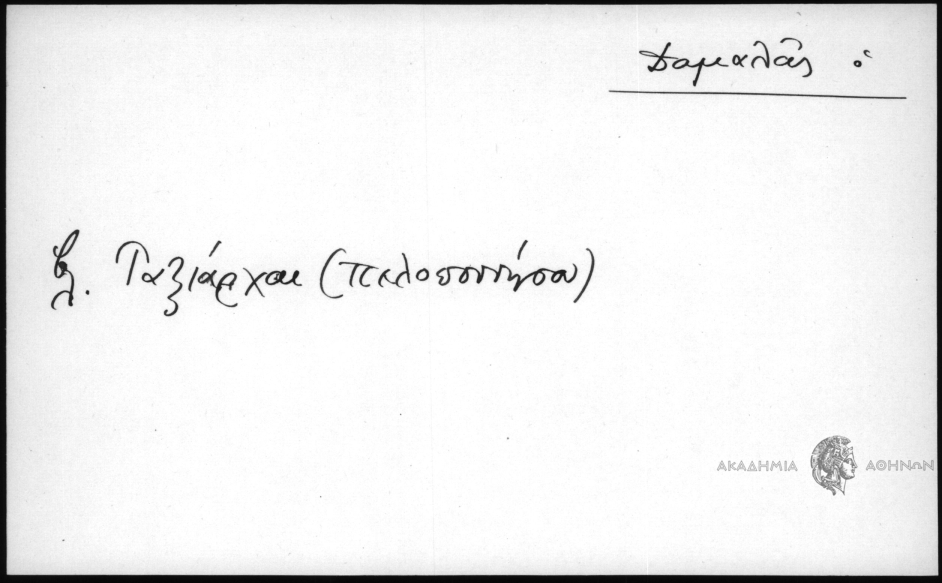 Δαμαλᾶς ὁ
βλ. Ταξιάρχαι (Πελοποννήσου)
ΑΚΑΔΗΜΙΑ ΑΘΗΝΩΝ